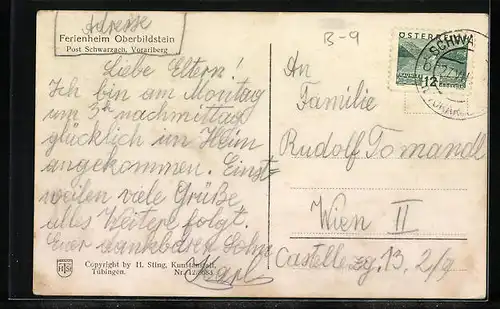 Adresse
Ferienheim Oberbildstein
Post Schwarzach, Vorarlberg
Liebe Eltern!
Ich bin am Montag
um 3h nachmittag
glücklich im Heim
angekommen. Einst=
weilen viele Grüße,
alles Weitere folgt.
Euer dankbarer Sohn
Karl
Copyright by H. Sting, Kunstanstalt,
Tübingen.
HSt
B-9
ÖSTERREICH
12
SCHWA
An
Familie
Rudolf Tomandl
Wien II
Castellezg. 13, 2/9